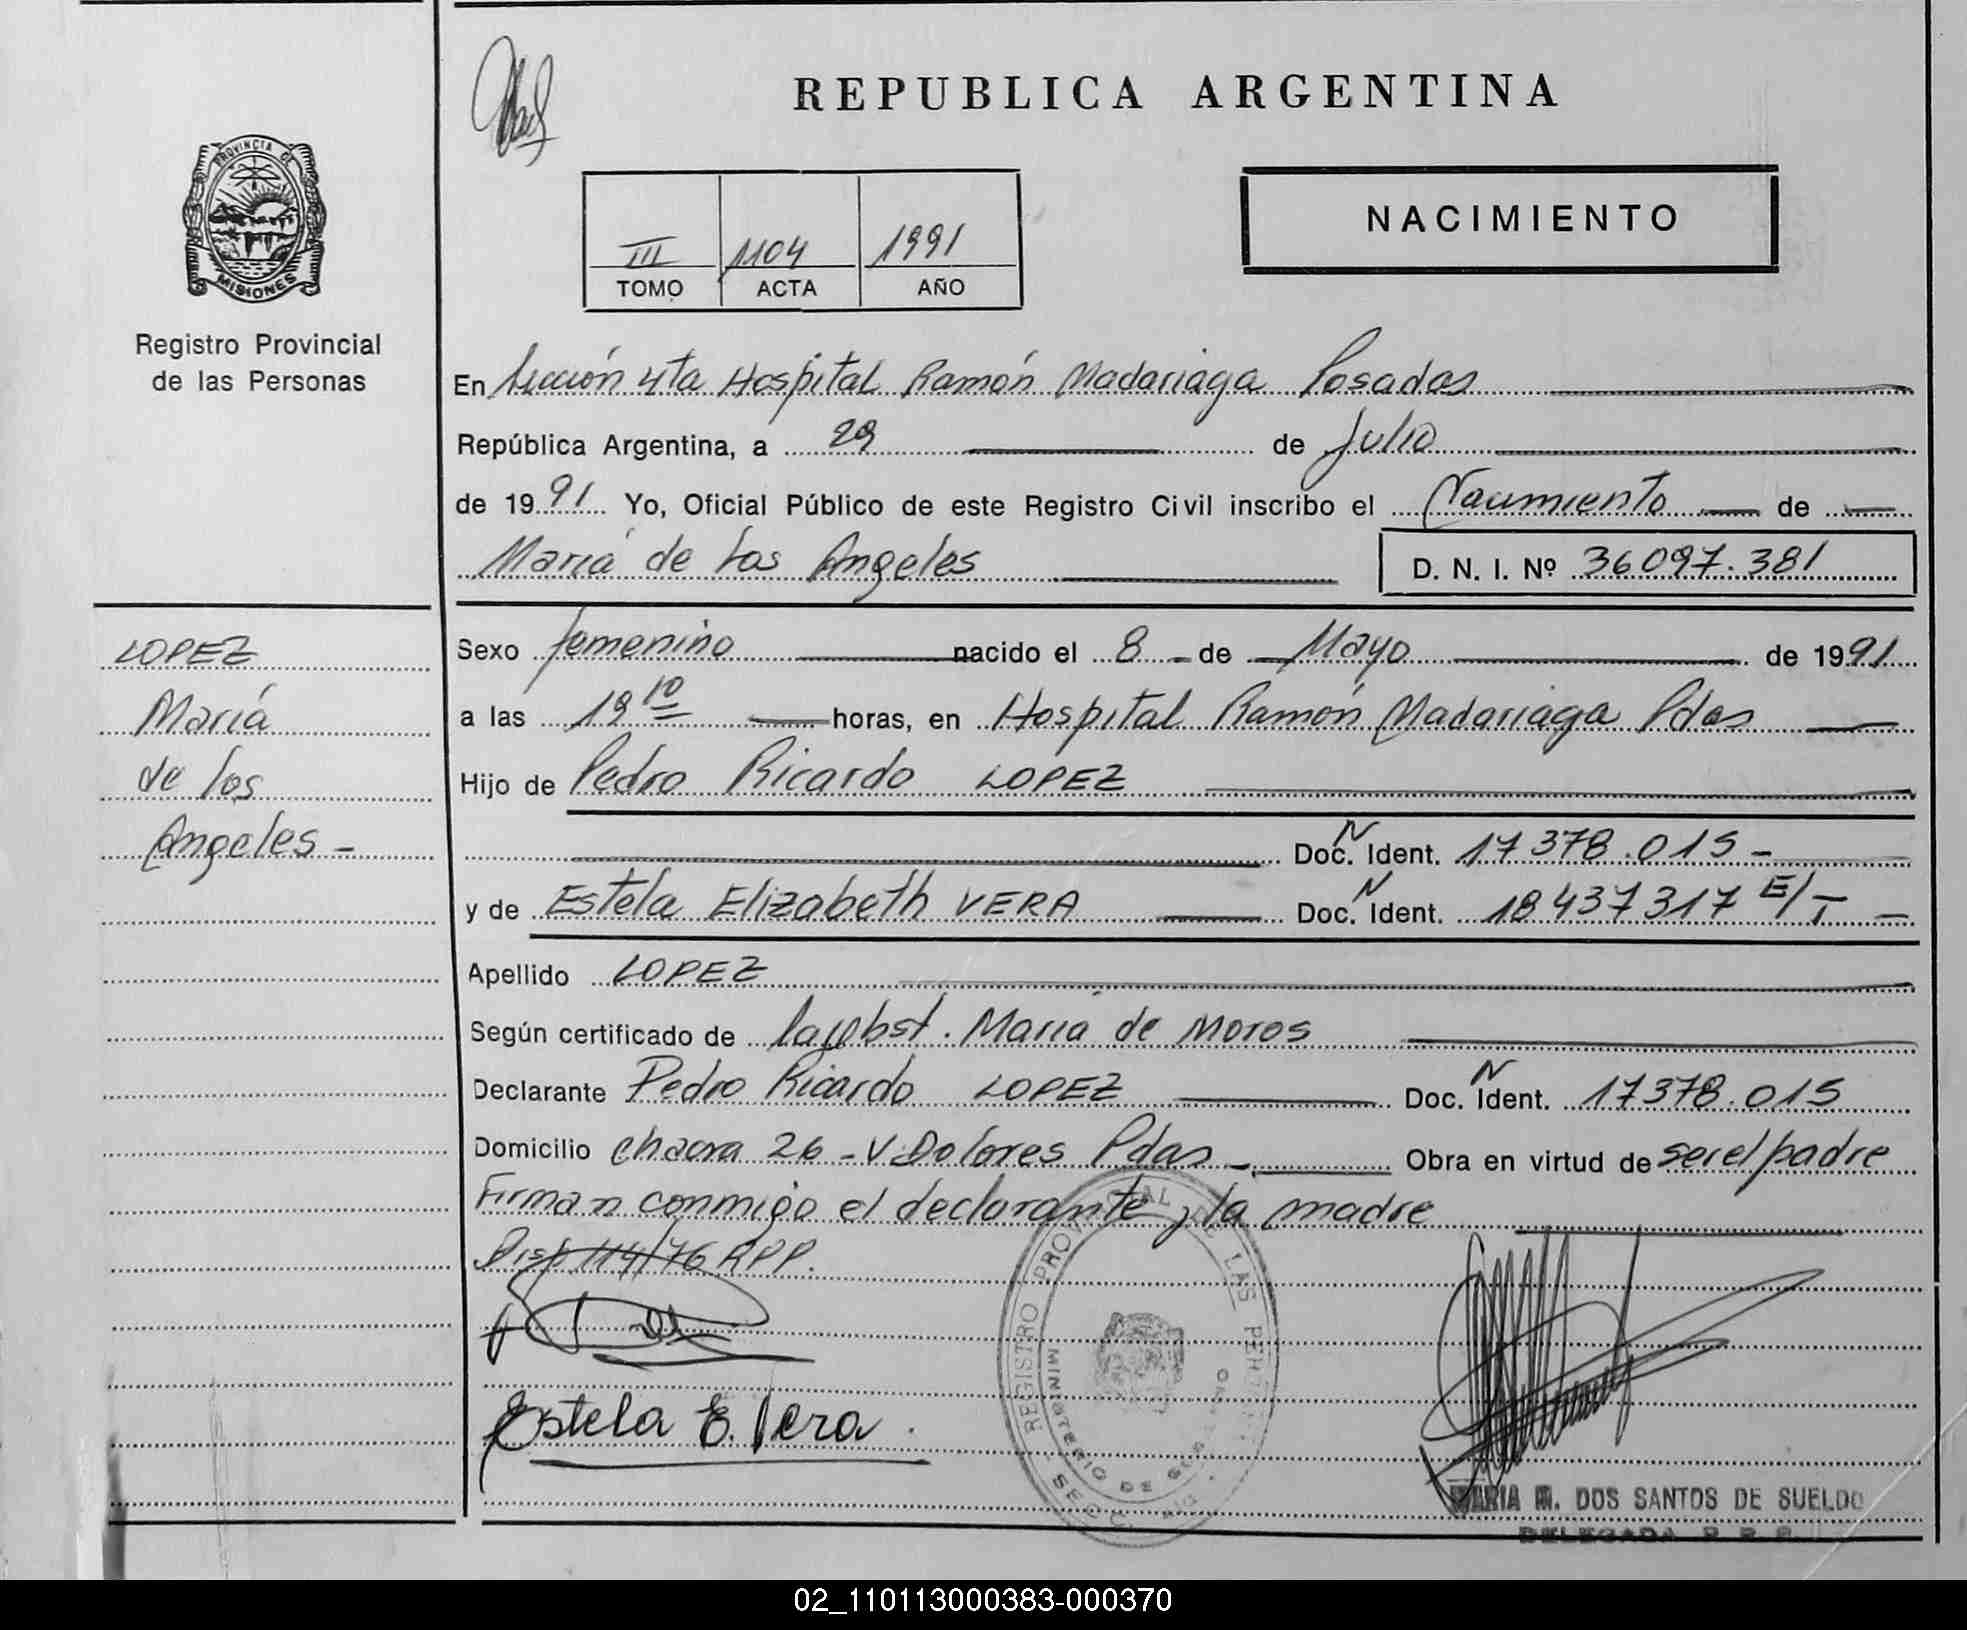 REPUBLICA ARGENTINA
PROVINCIA DE
MISIONES
Registro Provincial
de las Personas
III 1104 1991
TOMO ACTA AÑO
NACIMIENTO
En Sección 4ta Hospital Ramón Madariaga Posadas
República Argentina, a 29 de Julio
de 1991 Yo, Oficial Público de este Registro Civil inscribo el Nacimiento de
María de Los Angeles D. N. I. Nº 36097.381
LOPEZ
María
de los
Angeles -
Sexo femenino nacido el 8 de Mayo de 1991
a las 19 10 horas, en Hospital Ramón Madariaga Pdas
Hijo de Pedro Ricardo LOPEZ
Doc. N Ident. 17378.015 -
y de Estela Elizabeth VERA Doc. N Ident. 18437317 E/T -
Apellido LOPEZ
Según certificado de la Obst. María de Moros
Declarante Pedro Ricardo LOPEZ Doc. N Ident. 17378.015
Domicilio Chacra 26 - V. Dolores Pdas - Obra en virtud de ser el padre
Firman conmigo el declarante y la madre
Disp 114/76 RPP.
Estela E. Vera
REGISTRO PROVINCIAL DE LAS
MINISTERIO DE
MARIA M. DOS SANTOS DE SUELDO
DELEGADA R. P. P.
02_110113000383-000370